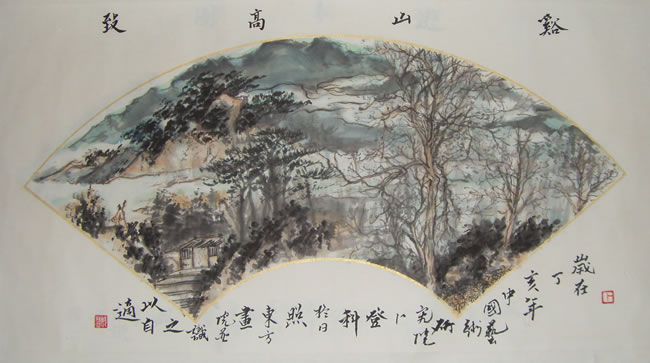 谿山高致
歲在
丁
亥年
中
國藝
術
研
究院
卜
登
科
於日
照
東方
畫
院並
識
之
以自
適